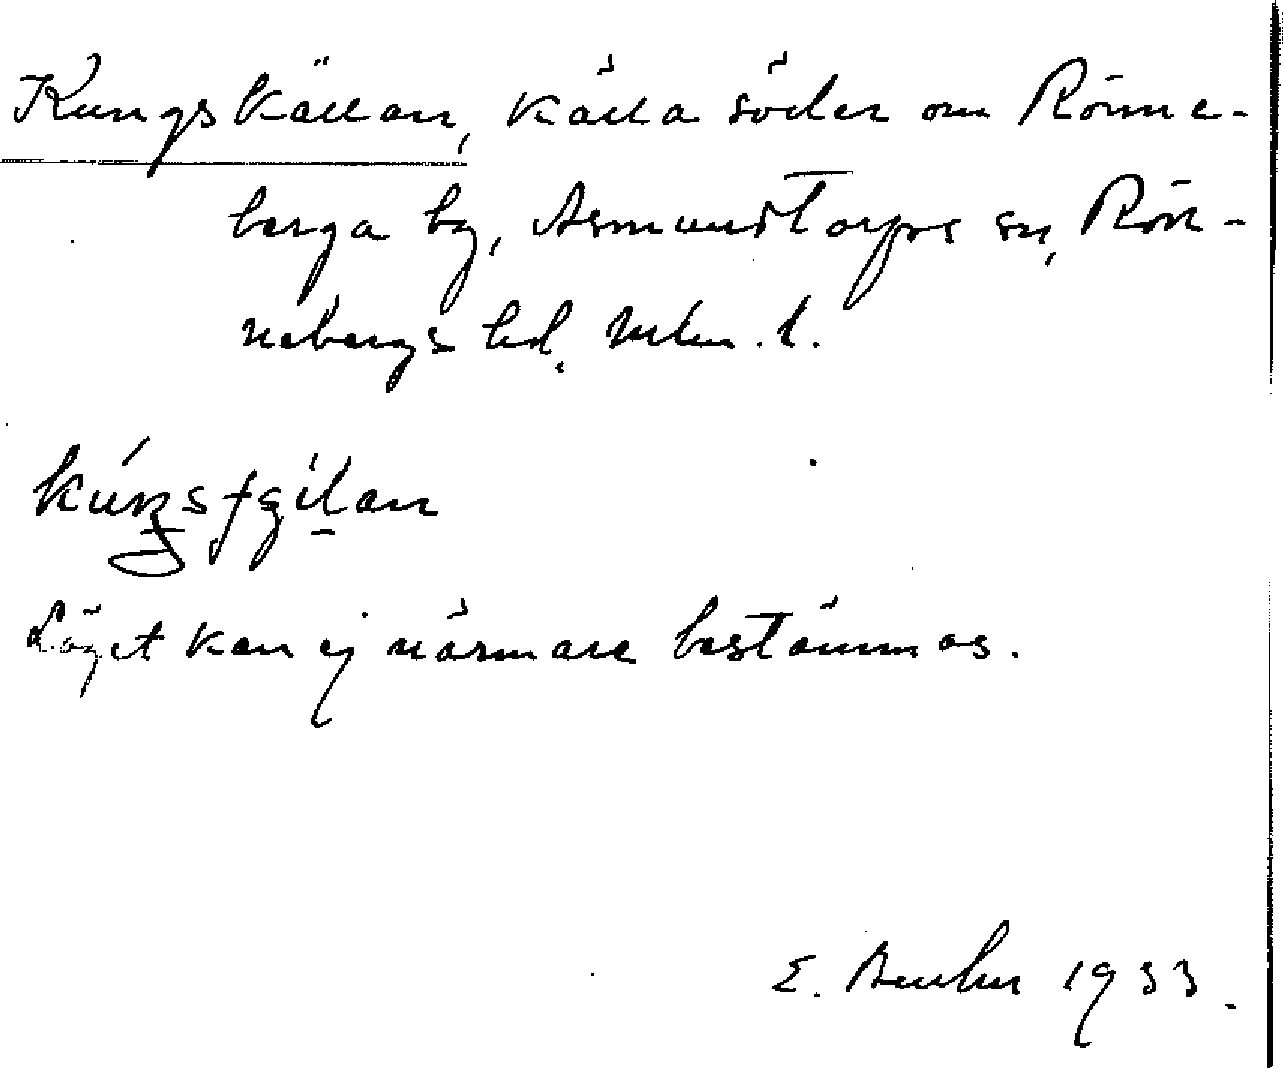 Kungskällan, källa söder om Rönne-
berga by, Asmundtorps sn, Rön-
nebergs hd. Mlm. l.
Läget kan ej närmare bestämmas.
E. 1933.